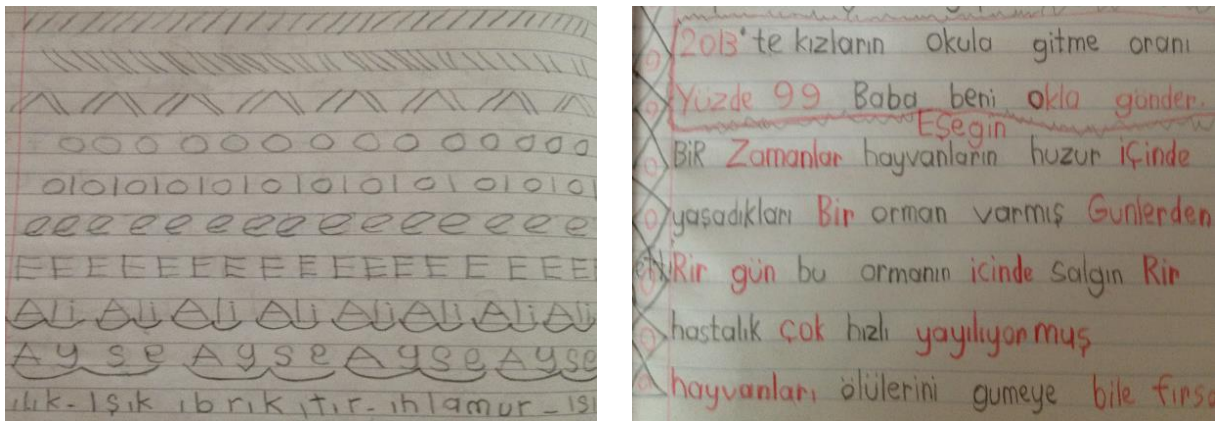 O O O O O O O O O O O O O O
0 1 0 1 0 1 0 1 0 1 0 1 0 1 0 1 0 1 0 1 0 1 0 1
e e e e e e e e e e e e e e e e
E E E E E E E E E E E E E E E E
Ali Ali Ali Ali Ali Ali Ali Ali
Ayse Ayse Ayse Ayse
ılık-Işık ıbrık ıtır- ıhlamur - ısı
2013'te kızların okula gitme oranı
Yüzde 99 Baba beni okla gönder.
Eşegin
BiR Zamanlar hayvanların huzur içinde
yaşadıkları Bir orman varmış Gunlerden
Rir gün bu ormanın icinde salgın Rir
hastalık çok hızlı yayılıyormuş
hayvanları ölülerini gumeye bile fırsa